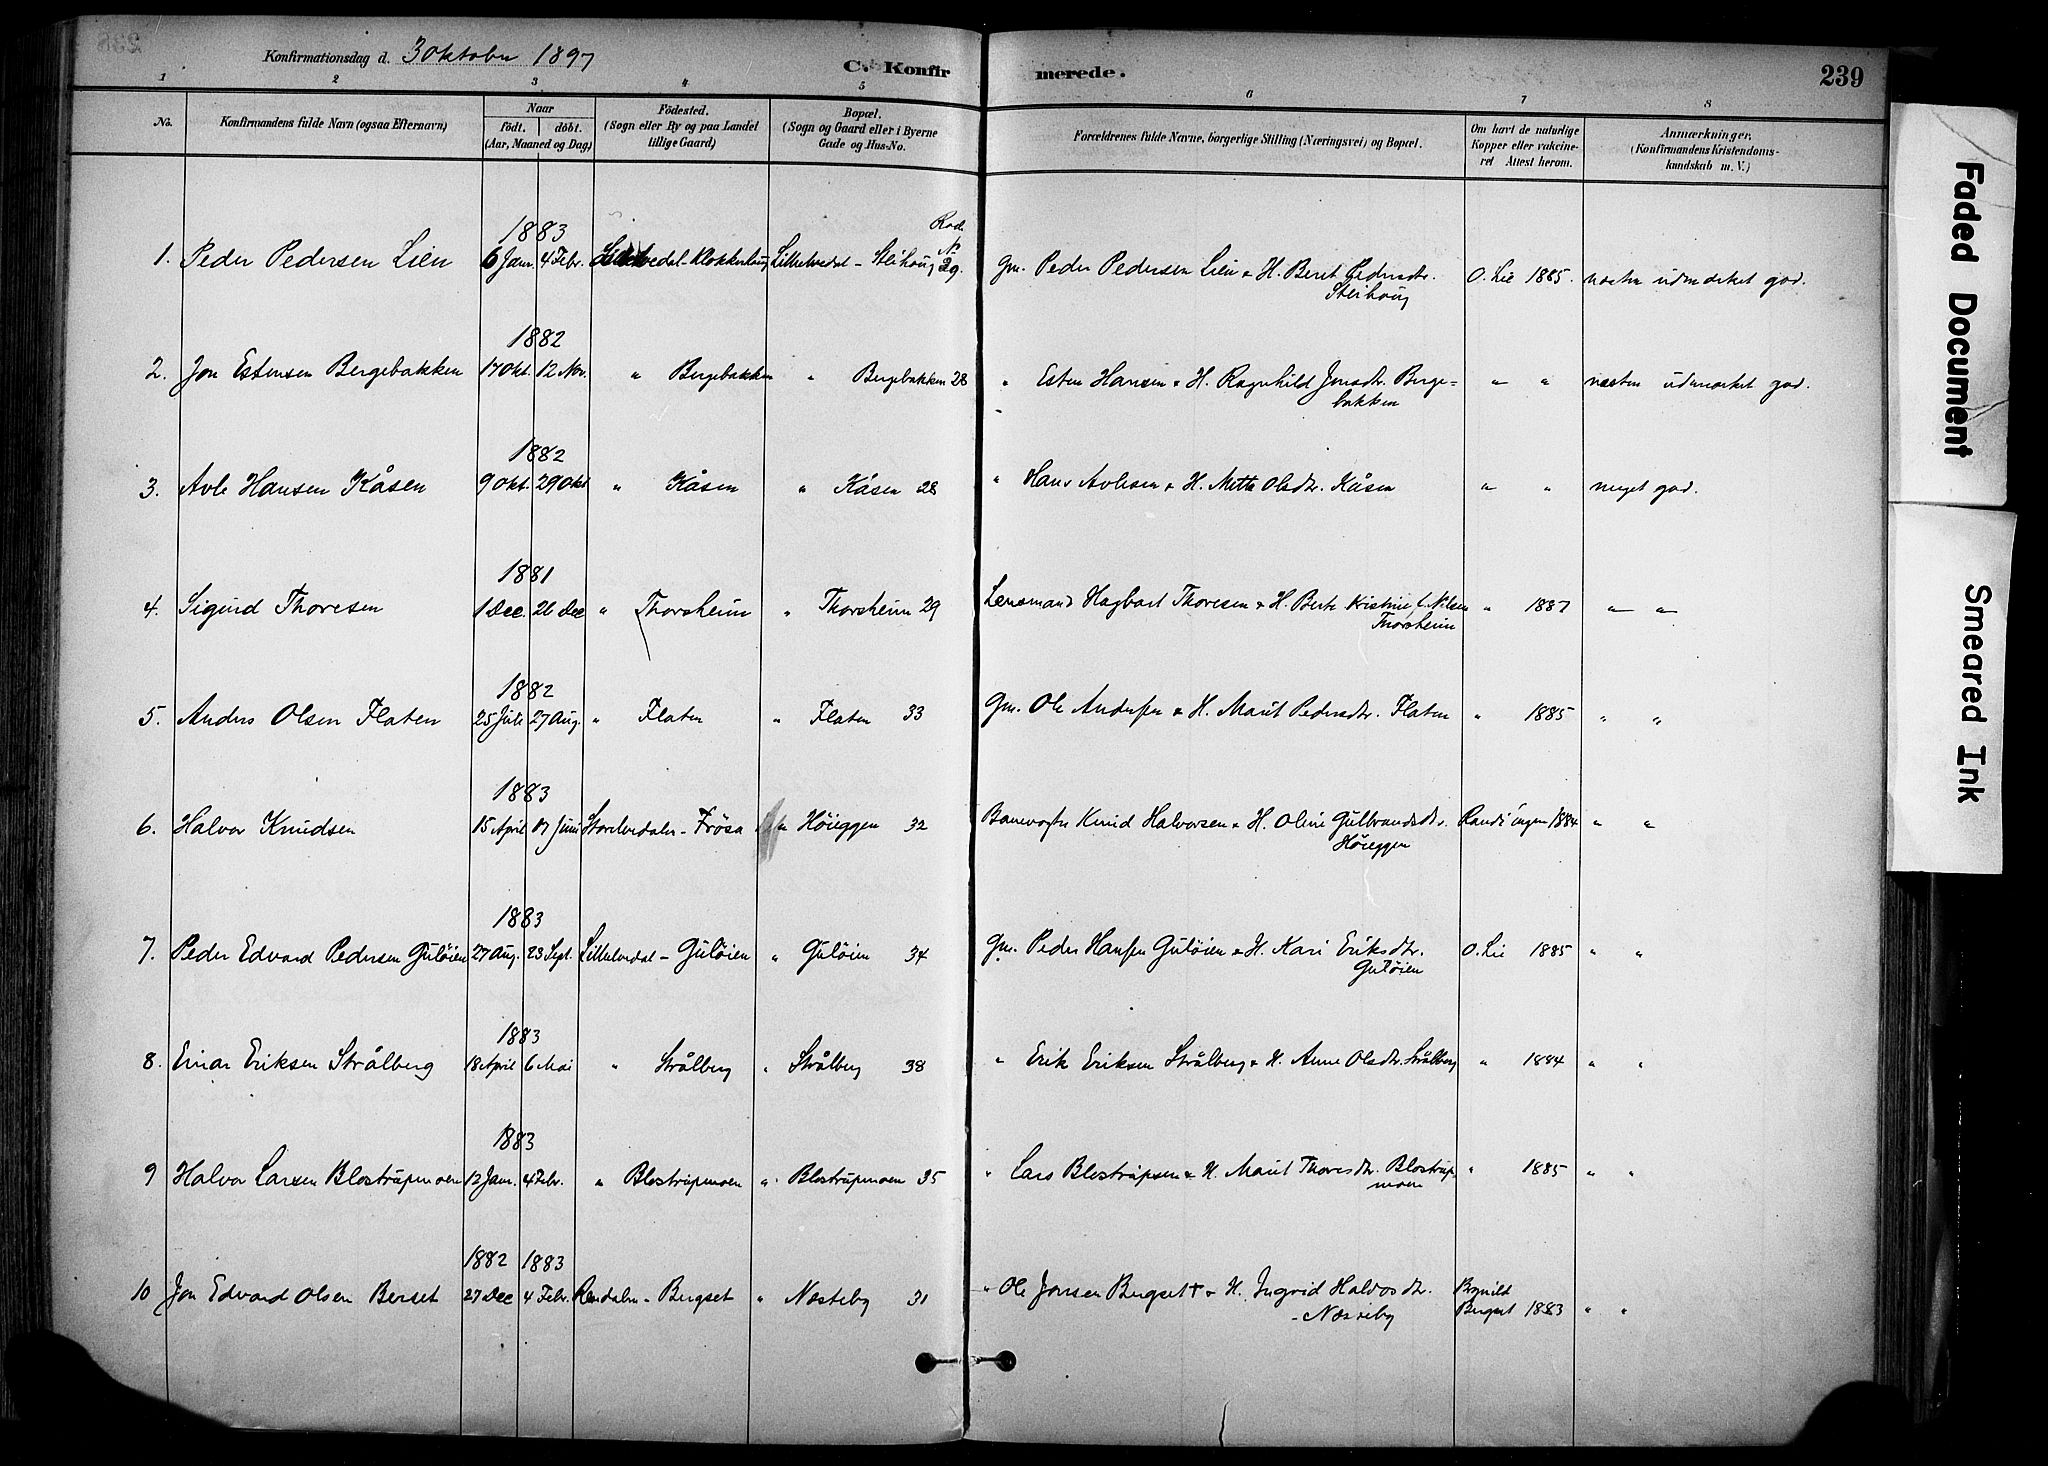 Konfirmationsdag d. 3 Oktober 1897
C. Konfirmerede.
239
1 2 3 4 5 6 7 8
No.
Konfirmandens fulde Navn (ogsaa Efternavn)
Naar
födt. döbt.
(Aar, Maaned og Dag)
Födested.
(Sogn eller By og paa Landet
tillige Gaard)
Bopæl.
(Sogn og Gaard eller i Byerne
Gade og Hus-No.
Forældrenes fulde Navne, borgerlige Stilling (Næringsvei) og Bopæl.
Om havt de naturlige
Kopper eller vakcine-
ret Attest herom.
Anmærkninger.
(Konfirmandens Kristendoms-
kundskab m. V.)
Rode
No
1883
1. Peder Pedersen Lien 6 Jan. 4 Febr. Lilleelvedal - Klokkerhaug Lilleelvedal - Steihoug 29. Gm. Peder Pedersen Lien & H. Beret Pedersdtr. O. Lie 1885. næsten udmærket god.
Steihoug
1882
2. Jon Estensen Bergebakken 17 Okt. 12 Nov. " Bergebakken " Bergebakken 28 " Esten Hansen & H. Ragnhild Jonsdtr. Berge- " " næsten udmærket god.
bakken
1882
3. Avle Hansen Kåsen 9 Okt. 29 Okt " Kåsen " Kåsen 28 " Hans Avlesen & H. Mette Olsdtr. Kåsen " " meget god.
1881
4. Sigurd Thoresen 1 Dec. 26 Dec " Thorsheim " Thorsheim 29 Lensmand Hagbart Thoresen & H. Berte Kristine f. Nilsen " 1887 " "
Thorsheim
1882
5. Anders Olsen Flaten 25 Juli 27 Aug. " Flaten " Flaten 33 Gm. Ole Andersen & H. Marit Pedersdtr. Flaten " 1885 " "
1883
6. Halvor Knudsen 15 April 17 Juni Storelvedalen - Frøsa " Høieggen 32 Banevogter Knud Halvorsen & H. Oline Gulbrandsdtr. 1884 " "
Høieggen
1883
7. Peder Edvard Pedersen Guløien 27 Aug. 23 Sept. Lilleelvedal - Guløien " Guløien 34 Gm. Peder Hansen Guløien & H. Kari Eriksdtr. O. Lie 1885 " "
Guløien
1883
8. Einar Eriksen Strålberg 18 April 6 Mai " Strålberg " Strålberg 38 " Erik Eriksen Strålberg & H. Anne Olsdtr. Strålberg " 1884 " "
1883
9 Halvor Larsen Blostrupmoen 12 Jan. 4 Febr. " Blostrupmoen " Blostrupmoen 35 " Lars Blostrupsen & H. Marit Thoresdtr. Blostrup- " 1885 " "
moen
1882 1883
10 Jon Edvard Olsen Berset 27 Dec 4 Febr. Rendalen - Bergset " Næsteby 31 " Ole Jonsen Bergset † & H. Ingrid Halvorsdtr. Bergset 1883 " "
- Næsteby
Faded Document
Smeared Ink